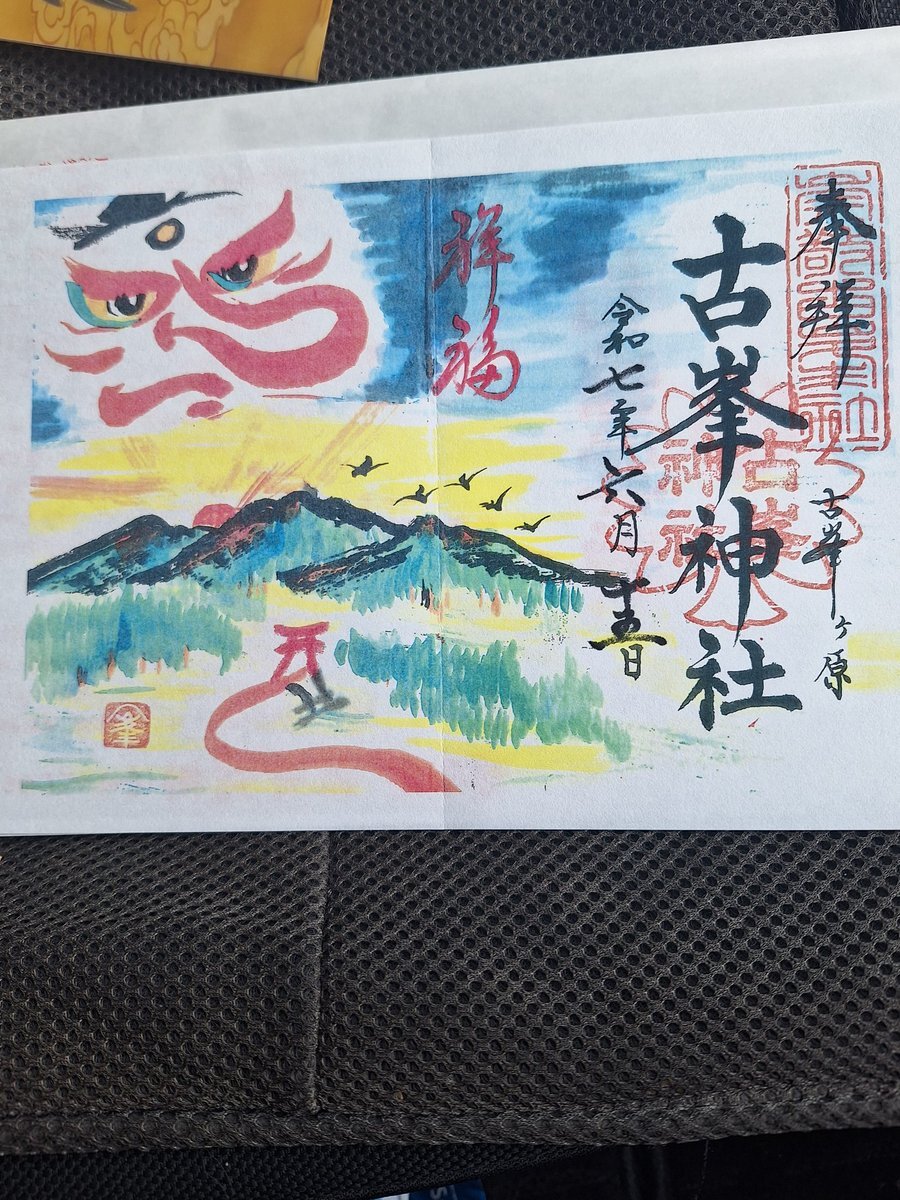 奉拝
古峯ヶ原
古峯神社
古峯
神社
令和七年六月十五日
祥福